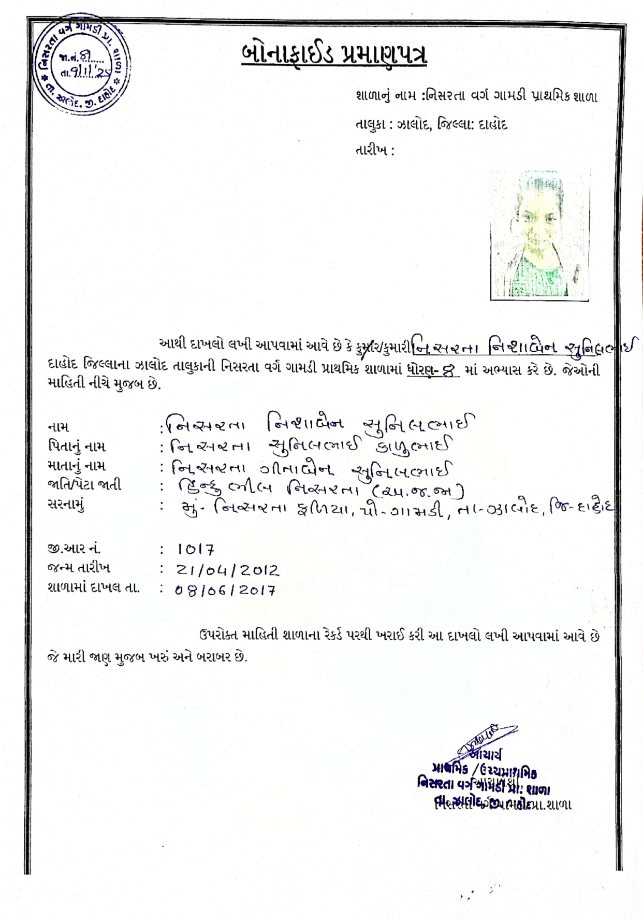 નિસરતા વર્ગ ગામડી પ્રા. શાળા
જા.નં. 81
તા. 9/1/'25
તા. ઝાલોદ, જી. દાહોદ
બોનાફાઈડ પ્રમાણપત્ર
શાળાનું નામ :નિસરતા વર્ગ ગામડી પ્રાથમિક શાળા
તાલુકા : ઝાલોદ, જિલ્લા: દાહોદ
તારીખ :
આથી દાખલો લખી આપવામાં આવે છે કે કુમાર/કુમારી નિસરતા નિશાબેન સુનિલભાઈ
દાહોદ જિલ્લાના ઝાલોદ તાલુકાની નિસરતા વર્ગ ગામડી પ્રાથમિક શાળામાં ધોરણ-8 માં અભ્યાસ કરે છે. જેઓની
માહિતી નીચે મુજબ છે.
નામ : નિસરતા નિશાબેન સુનિલભાઈ
પિતાનું નામ : નિસરતા સુનિલભાઈ કાળુભાઈ
માતાનું નામ : નિસરતા ગીતાબેન સુનિલભાઈ
જાતિ/પેટા જાતી : હિન્દુ ભીલ નિસરતા (અ.જ.જા)
સરનામું : મુ- નિસરતા ફળિયા, પો-ગામડી, તા-ઝાલોદ, જિ-દાહોદ
જી.આર નં. : 1017
જન્મ તારીખ : 21/04/2012
શાળામાં દાખલ તા. : 08/06/2017
ઉપરોક્ત માહિતી શાળાના રેકર્ડ પરથી ખરાઈ કરી આ દાખલો લખી આપવામાં આવે છે
જે મારી જાણ મુજબ ખરું અને બરાબર છે.
આચાર્ય
પ્રાથમિક /ઉચ્ચપ્રાથમિક
નિસરતા વર્ગ ગામડી પ્રા. શાળા
તા. ઝાલોદ, જી. દાહોદ
પ્રા.શાળા